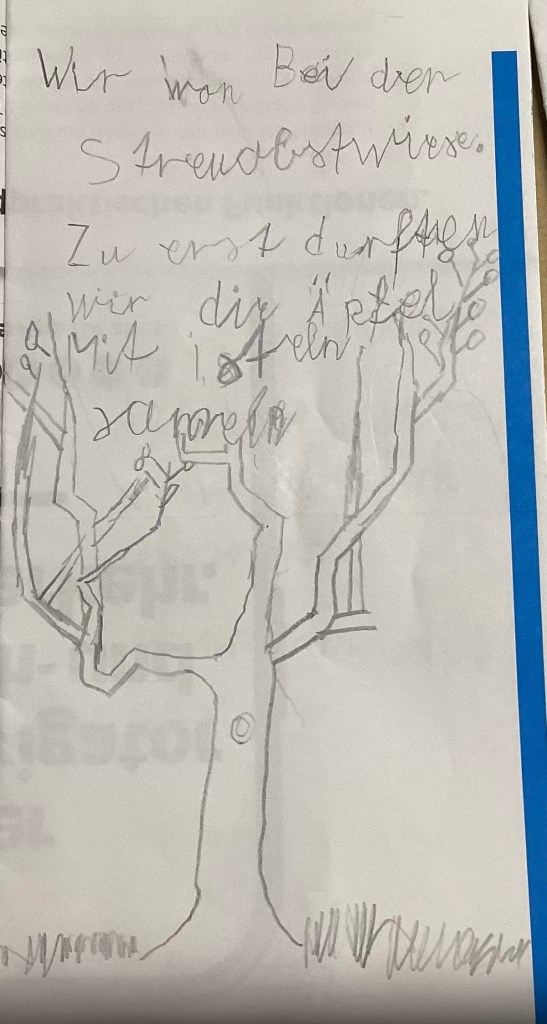 Wir wan Bei der
Streuobstwiese.
Zu erst durften
wir die Äpfel
Mit
sammeln